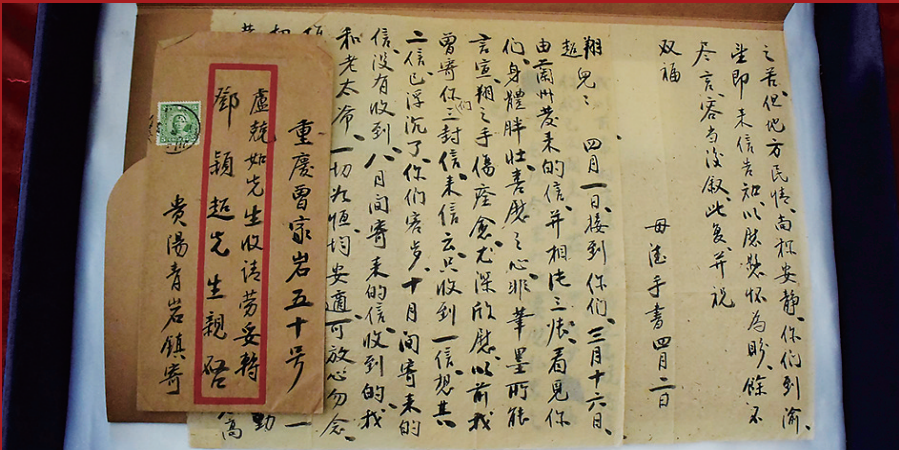 之苦但地方民情、尚称安静、你们到渝、
望即来信告知、以慰愁怀为盼、馀不
尽言、容当后叙、此复、并祝
双福
母德手書四月二日
翔超兒：四月一日、接到你们、三月十六日、
由蘭州发来的信、并相片三张、看見你
们、身體胖壮、喜慰之心、非筆墨所能
言宣、翔之手傷痊愈、尤深欣慰、以前我
曾寄你们三封信、来信云、只收到一信、想其
二信已浮沉了、你们客岁、十月间寄来的
信、没有收到、八月间寄来的信收到的、我
和老太爷、一切为恒、均安適、可放心勿念、
重慶曾家岩五十号
盧兢如先生收请劳妥轉
鄧穎超先生親啓
貴陽青岩鎮寄